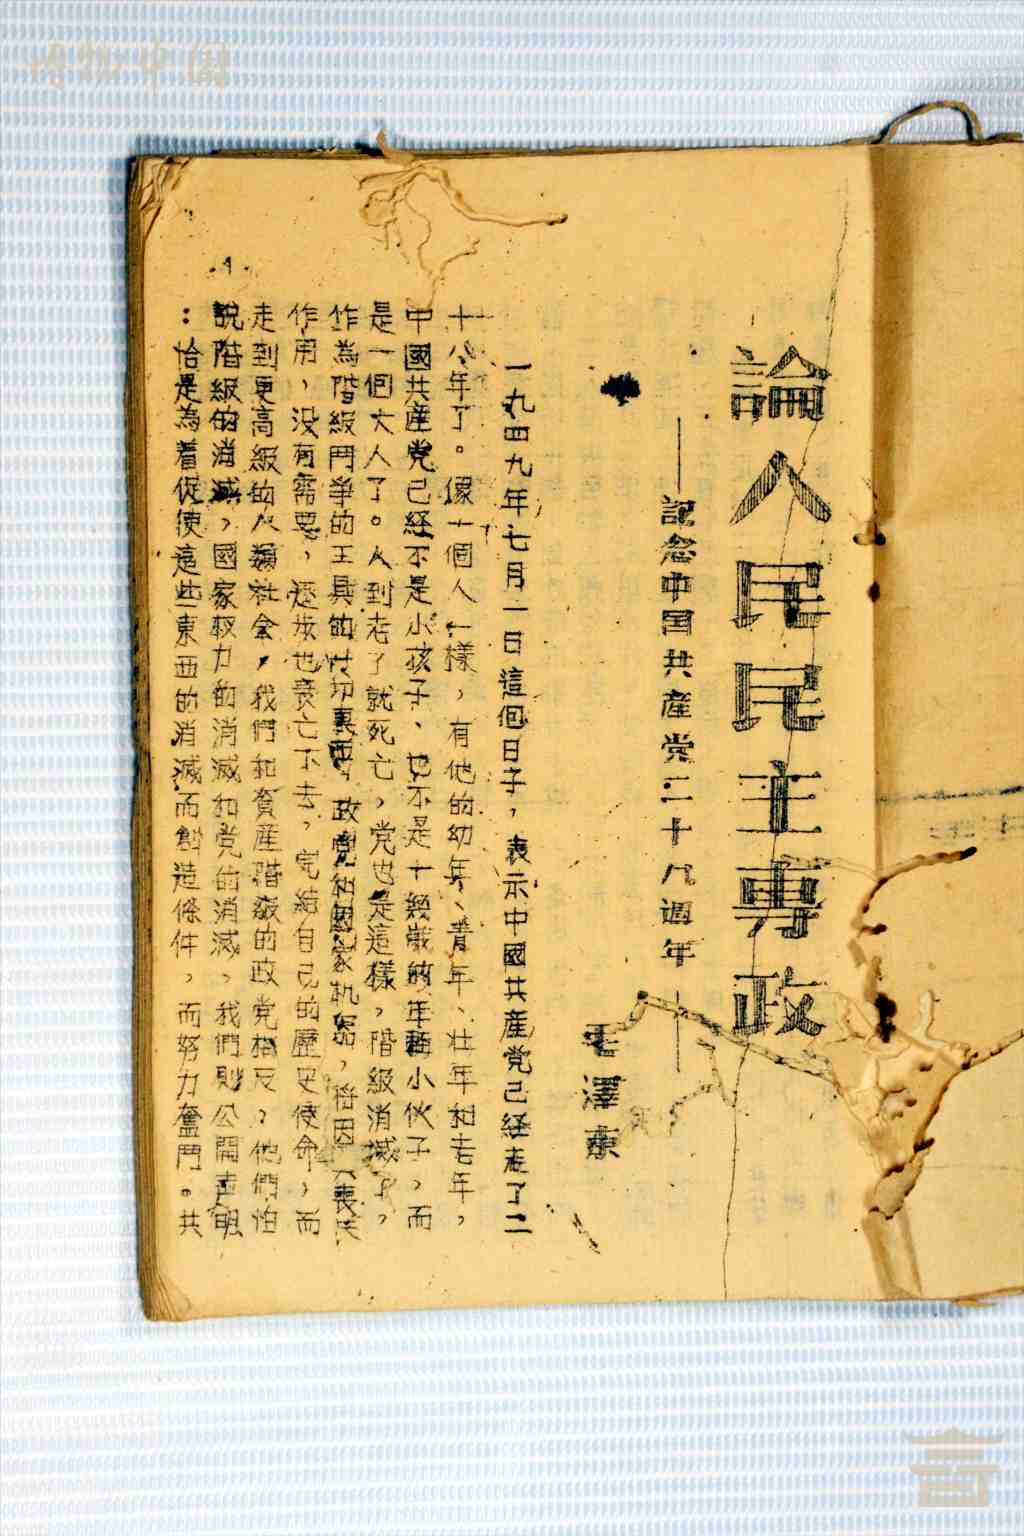 論人民民主專政
——記念中国共產党二十八週年——
毛澤東
一九四九年七月一日這個日子，表示中國共產党已経走了二
十八年了。像一個人一樣，有他的幼年、青年、壮年和老年，
中國共產党已経不是小孩子、也不是十幾歲的年輕小伙子，而
是一個大人了。人到老了就死亡，党也是這樣，階級消滅了，
作為階級鬥爭的工具的一切東西，政党和國家机器，將因其喪失
作用，没有需要，逐步地衰亡下去，完結自己的歷史使命，而
走到更高級的人類社会，我們和資產階級的政党相反，他們怕
説階級的消滅，國家权力的消滅和党的消滅，我們則公開声明
：恰是為着促使這些東西的消滅而創造條件，而努力奮鬥。共
1
博物中国